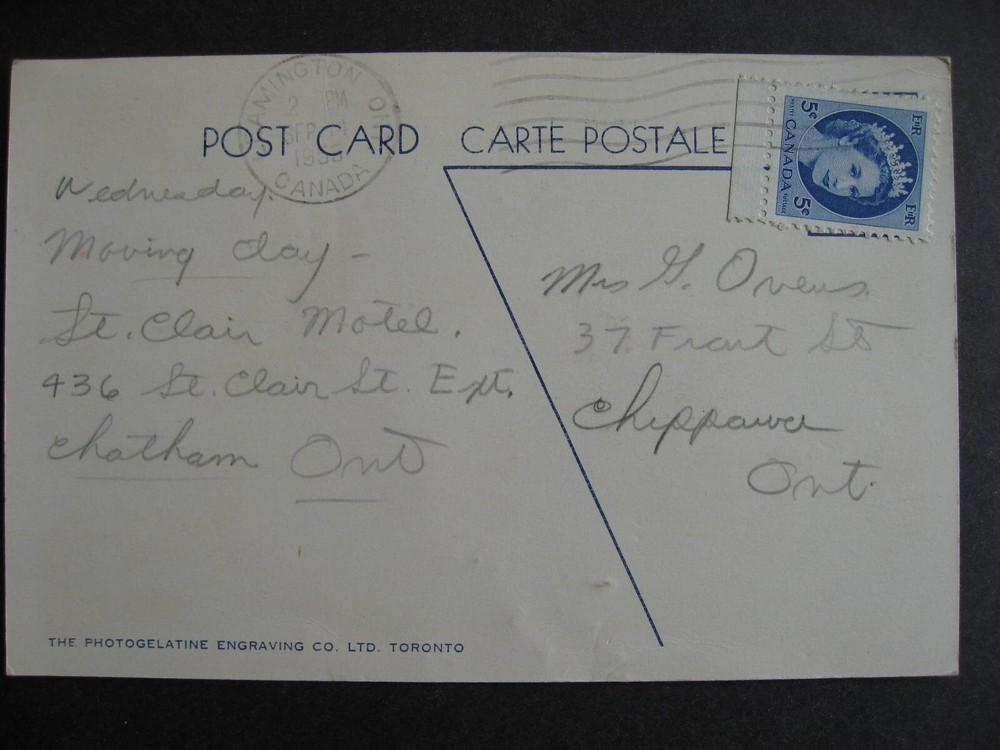 LEAMINGTON ONT
2 PM
SEP
CANADA
POST CARD CARTE POSTALE
5¢ CANADA 5¢
POSTES POSTAGE
EIIR EIIR
Wednesday.
Moving day –
St. Clair Motel.
436 St. Clair St. Ext.
Chatham Ont
Mrs G. Ovens
37 Front St
Chippawa
Ont.
THE PHOTOGELATINE ENGRAVING CO. LTD. TORONTO